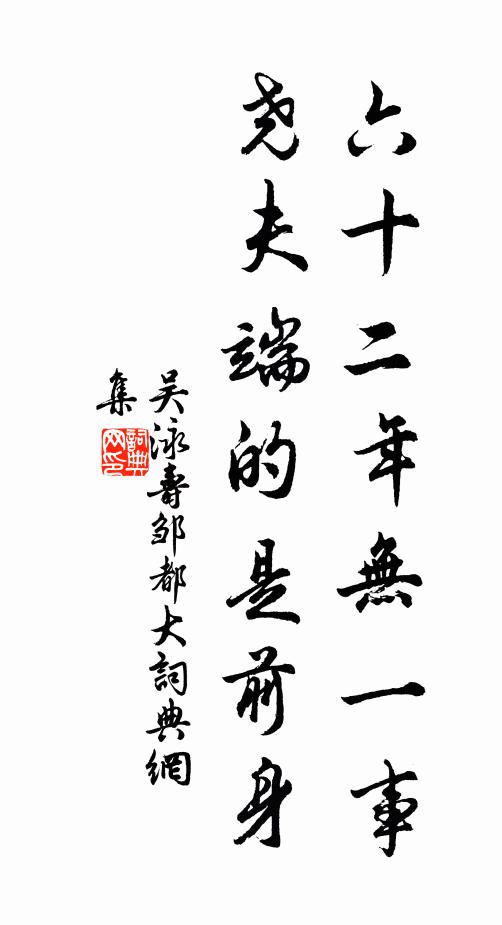 六十二年無一事
尧夫端的是前身
吴泳壽邹都大詞典網
集
詞典
网印